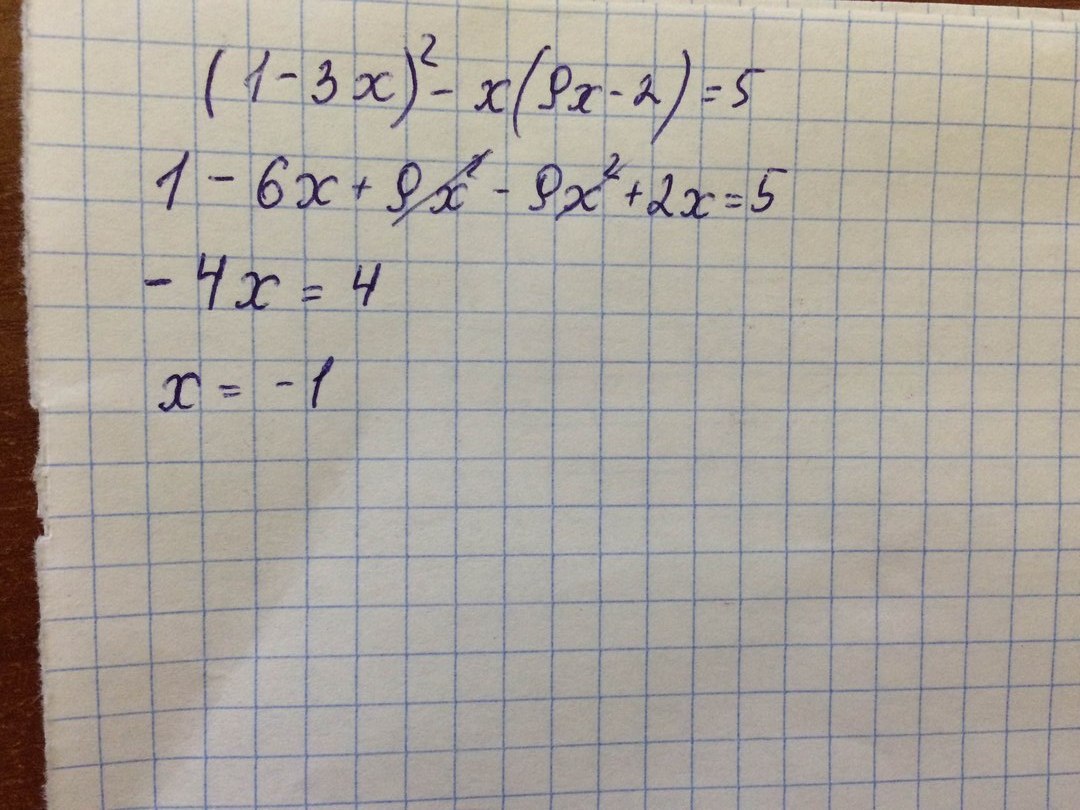 (1-3x)²-x(9x-2)=5
1-6x+9x²-9x²+2x=5
-4x=4
x=-1